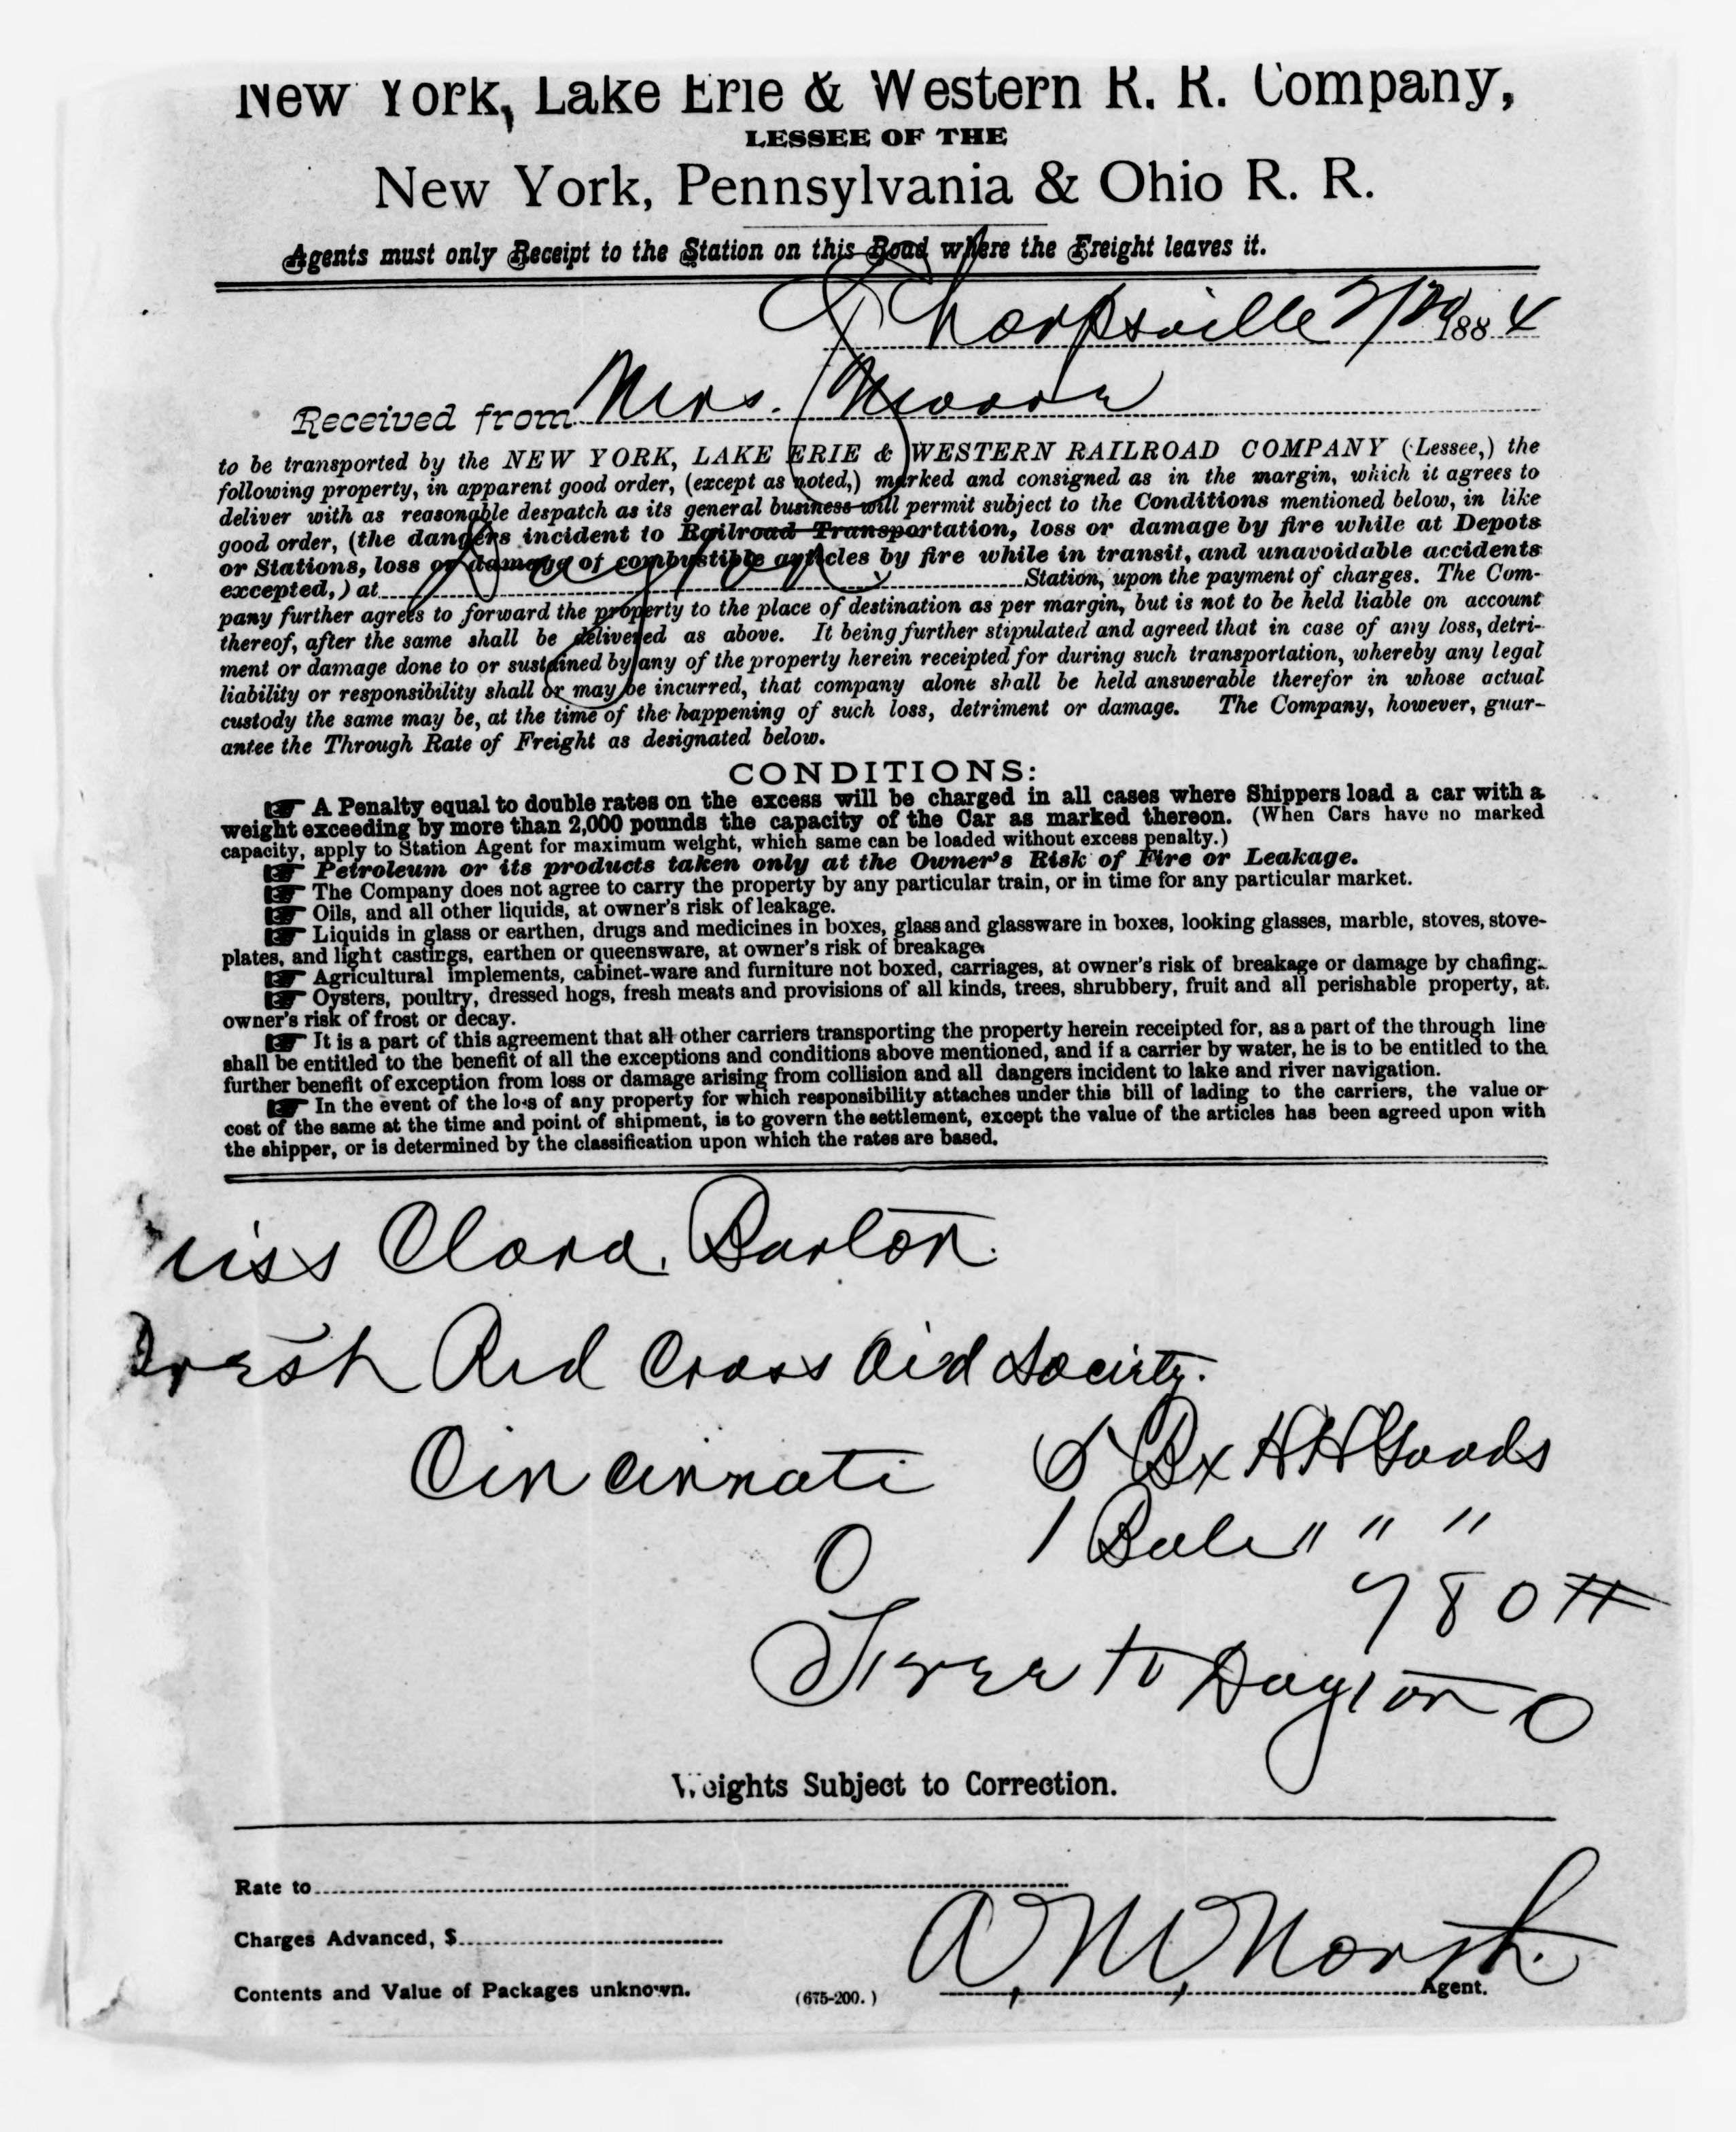 New York, Lake Erie & Western R. R. Company,
LESSEE OF THE
New York, Pennsylvania & Ohio R. R.
Agents must only Receipt to the Station on this Road where the Freight leaves it.
Sharpsville 2/20 1884
Received from Mrs. Moore
to be transported by the NEW YORK, LAKE ERIE & WESTERN RAILROAD COMPANY (Lessee,) the
following property, in apparent good order, (except as noted,) marked and consigned as in the margin, which it agrees to
deliver with as reasonable despatch as its general business will permit subject to the Conditions mentioned below, in like
good order, (the dangers incident to Railroad Transportation, loss or damage by fire while at Depots
or Stations, loss or damage of combustible articles by fire while in transit, and unavoidable accidents
excepted,) at Dayton Station, upon the payment of charges. The Com-
pany further agrees to forward the property to the place of destination as per margin, but is not to be held liable on account
thereof, after the same shall be delivered as above. It being further stipulated and agreed that in case of any loss, detri-
ment or damage done to or sustained by any of the property herein receipted for during such transportation, whereby any legal
liability or responsibility shall or may be incurred, that company alone shall be held answerable therefor in whose actual
custody the same may be, at the time of the happening of such loss, detriment or damage. The Company, however, guar-
antee the Through Rate of Freight as designated below.
CONDITIONS:
☞ A Penalty equal to double rates on the excess will be charged in all cases where Shippers load a car with a
weight exceeding by more than 2,000 pounds the capacity of the Car as marked thereon. (When Cars have no marked
capacity, apply to Station Agent for maximum weight, which same can be loaded without excess penalty.)
☞ Petroleum or its products taken only at the Owner's Risk of Fire or Leakage.
☞ The Company does not agree to carry the property by any particular train, or in time for any particular market.
☞ Oils, and all other liquids, at owner's risk of leakage.
☞ Liquids in glass or earthen, drugs and medicines in boxes, glass and glassware in boxes, looking glasses, marble, stoves, stove-
plates, and light castings, earthen or queensware, at owner's risk of breakage.
☞ Agricultural implements, cabinet-ware and furniture not boxed, carriages, at owner's risk of breakage or damage by chafing.
☞ Oysters, poultry, dressed hogs, fresh meats and provisions of all kinds, trees, shrubbery, fruit and all perishable property, at
owner's risk of frost or decay.
☞ It is a part of this agreement that all other carriers transporting the property herein receipted for, as a part of the through line
shall be entitled to the benefit of all the exceptions and conditions above mentioned, and if a carrier by water, he is to be entitled to the
further benefit of exception from loss or damage arising from collision and all dangers incident to lake and river navigation.
☞ In the event of the loss of any property for which responsibility attaches under this bill of lading to the carriers, the value or
cost of the same at the time and point of shipment, is to govern the settlement, except the value of the articles has been agreed upon with
the shipper, or is determined by the classification upon which the rates are based.
Miss Clara. Barton.
Prest Red Cross Aid Society.
Cincinnati
O
Bx HH Goods
1 Bale " " "
780 #
Free to Dayton O
Weights Subject to Correction.
Rate to
Charges Advanced, $
Contents and Value of Packages unknown.
(675-200.)
Agent.